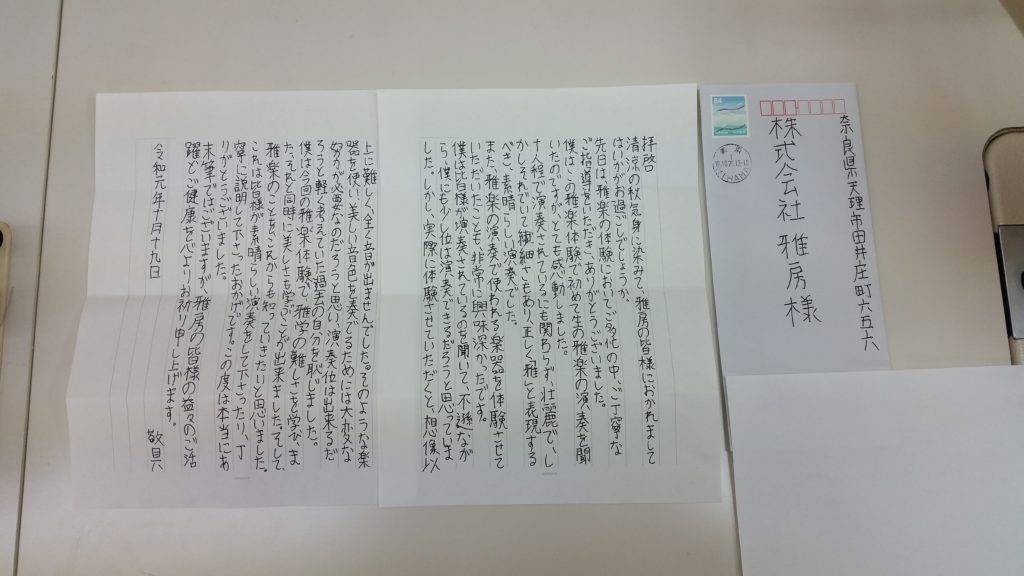 奈良県天理市田井庄町六五六
株式会社 雅房様
84
拝啓
清涼の秋気身に染みて、雅房の皆様におかれまして
はいかがお過ごしでしょうか。
先日は、雅楽の体験においてご多忙の中、ご丁寧な
ご指導をいただきありがとうございました。
僕はこの雅楽体験で初めて生の雅楽の演奏を聞
いたのですが、とても感動しました。
十人程で演奏されているにも関わらず、壮麗で、し
かしそれでいて繊細さもあり、正しく雅と表現する
べき、素晴らしい演奏でした。
また、雅楽の演奏で使われる楽器を体験させて
いただいたことも、非常に興味深かったです。
僕は皆様が演奏されているのを聞いて、不遜なが
ら、僕にも少し位は演奏できるだろうと思っていま
した。しかし、実際に体験させていただくと、想像以
上に難しく、全く音が出ませんでした。そのような楽
器を使い、美しい音色を奏でるためには大変な
努力が必要なのだろうと思い、演奏位は出来るだ
ろうと軽く考えていた過去の自分を恥じました。
僕は今回の雅楽体験で、雅学の難しさを学び、ま
た、それと同時に美しさも学ぶことが出来ました。そして、
雅楽のことをこれからも知っていきたいと思いました。
これは皆様が素晴らしい演奏をして下さったり、丁
寧に説明して下さったおかげです。この度は本当にあ
りがとうございました。
末筆ではございますが、雅房の皆様の益々のご活
躍とご健康を心よりお祈り申し上げます。
敬具
令和元年十月十九日